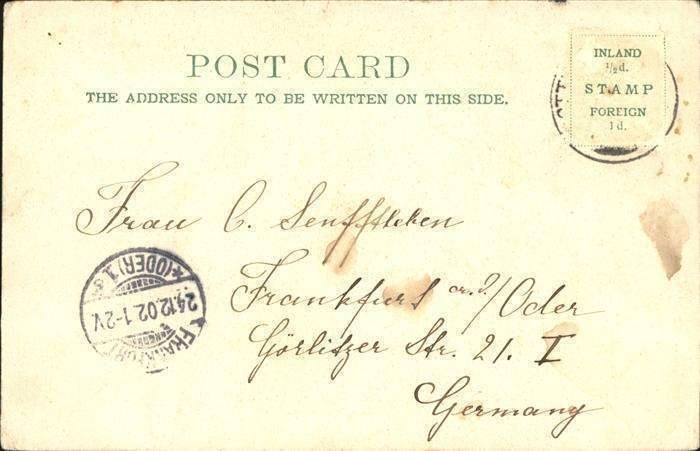 POST CARD
THE ADDRESS ONLY TO BE WRITTEN ON THIS SIDE.
INLAND
½d.
STAMP
FOREIGN
1d.
Frau C. Senfftleben
Frankfurt a.d./Oder
Görlitzer Str. 21. I
Germany
FRANKFURT
24.12.02.1-2V.
*(ODER)1.